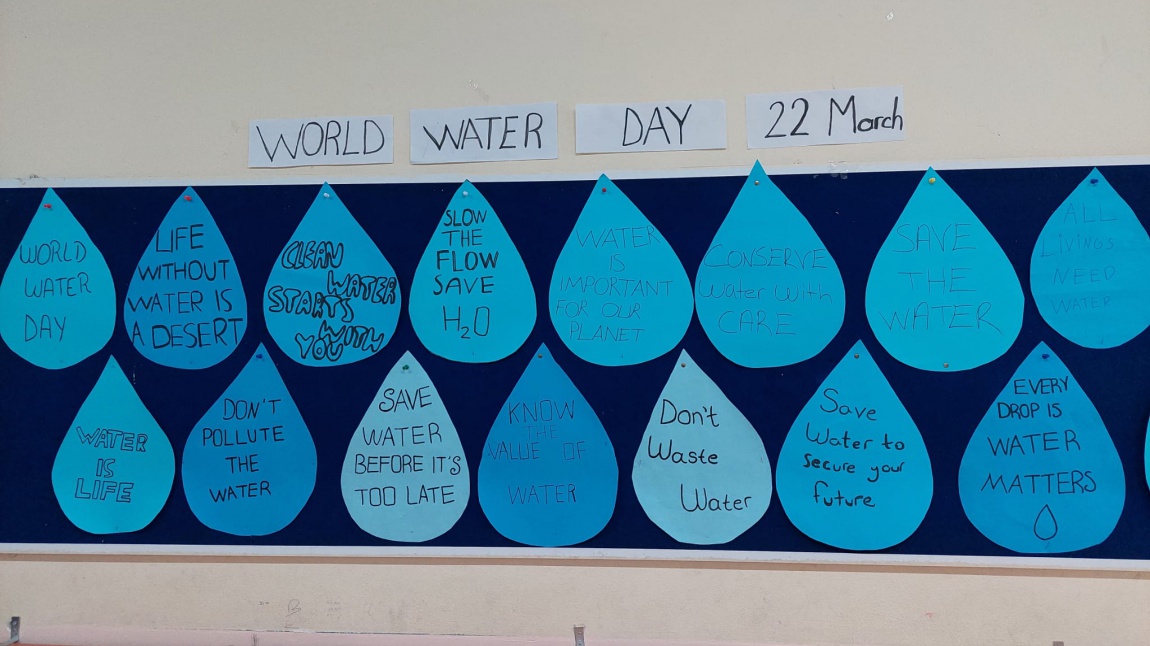 WORLD WATER DAY 22 March
WORLD
WATER
DAY
LIFE
WITHOUT
WATER IS
A DESERT
CLEAN
WATER
STARTS
WITH
YOU
SLOW
THE
FLOW
SAVE
H₂O
WATER
IS
IMPORTANT
FOR OUR
PLANET
CONSERVE
Water With
CARE
SAVE
THE
WATER
ALL
LIVINGS
NEED
WATER
WATER
IS
LIFE
DON'T
POLLUTE
THE
WATER
SAVE
WATER
BEFORE IT'S
TOO LATE
KNOW
THE
VALUE OF
WATER
Don't
Waste
Water
Save
Water to
secure your
future
EVERY
DROP IS
WATER
MATTERS